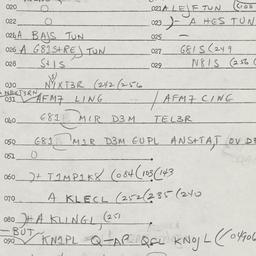 020 0 021 A LEJF TUN
022 0 023 )- A HES TUN
024 A BAJS TUN 025 -
026 A G81S+RE) TUN 027 G81S (249
028 S41S 029 N81S (256
030 NYXT3R (242 (256
031 AFM7 LING / AFM7 CING
040 G81 MIR D3M TEL3R
050 G81 MIR D3M GUPL ANSTAT, OV D3
051 0
060 )+ T1MP1K8 (084 (103 (143
070 A KLECL (252 (235 (240
080 )+A KLINGL (251
BUT
090 KN1PL Q-AP QCL KNOJL (04906